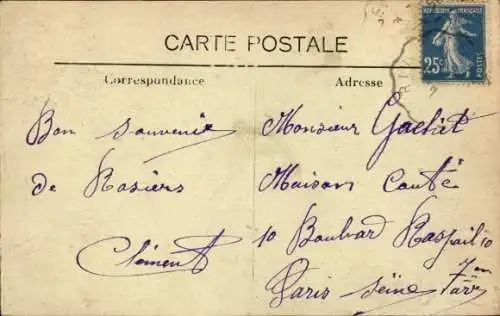 CARTE POSTALE
RÉPUBLIQUE FRANÇAISE
25c
POSTES
Correspondance
Adresse
Bon souvenir
de Rosiers
Clément
Monsieur Gachet
Maison Conté
10 Boulvard Raspail 10
Paris Seine 7em